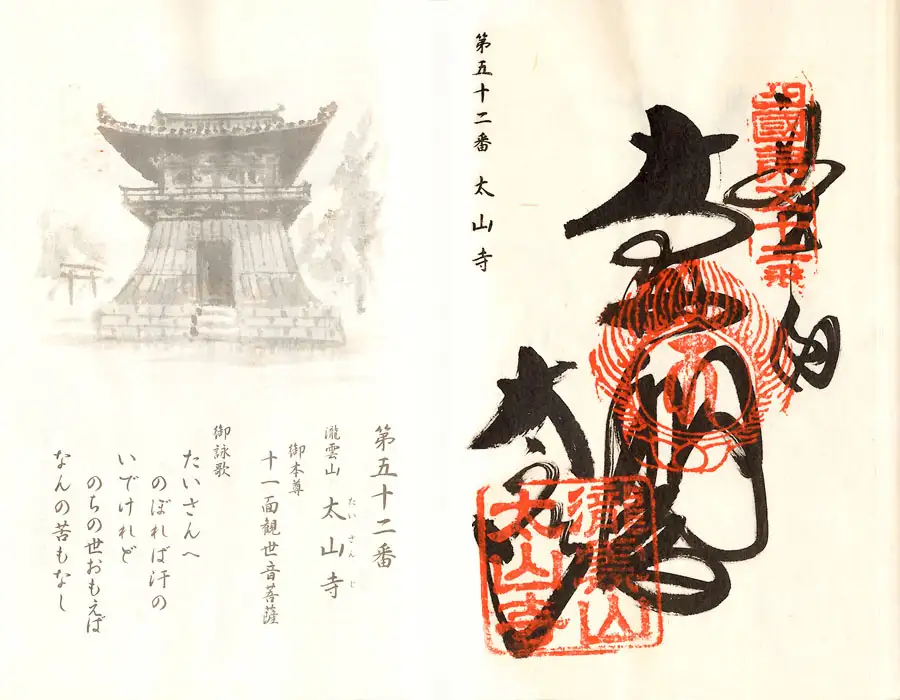 四國第五十二番
太山寺
瀧雲山
太山寺
第五十二番 太山寺
第五十二番
瀧雲山 太山寺
たいさんじ
御本尊
十一面観世音菩薩
御詠歌
たいさんへ
のぼれば汗の
いでけれど
のちの世おもえば
なんの苦もなし